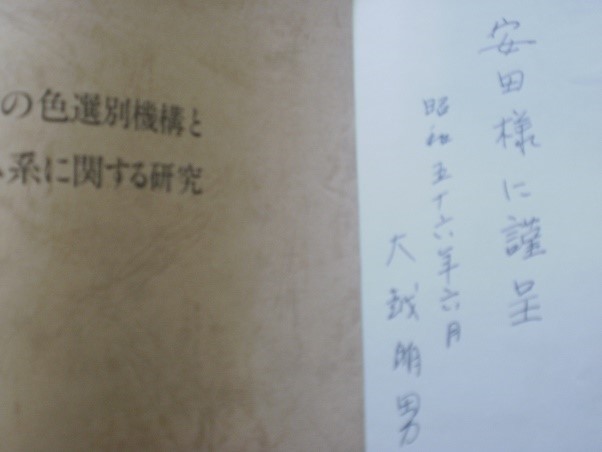 の色選別機構と
系に関する研究
安田様に謹呈
昭和五十六年六月
大越明男